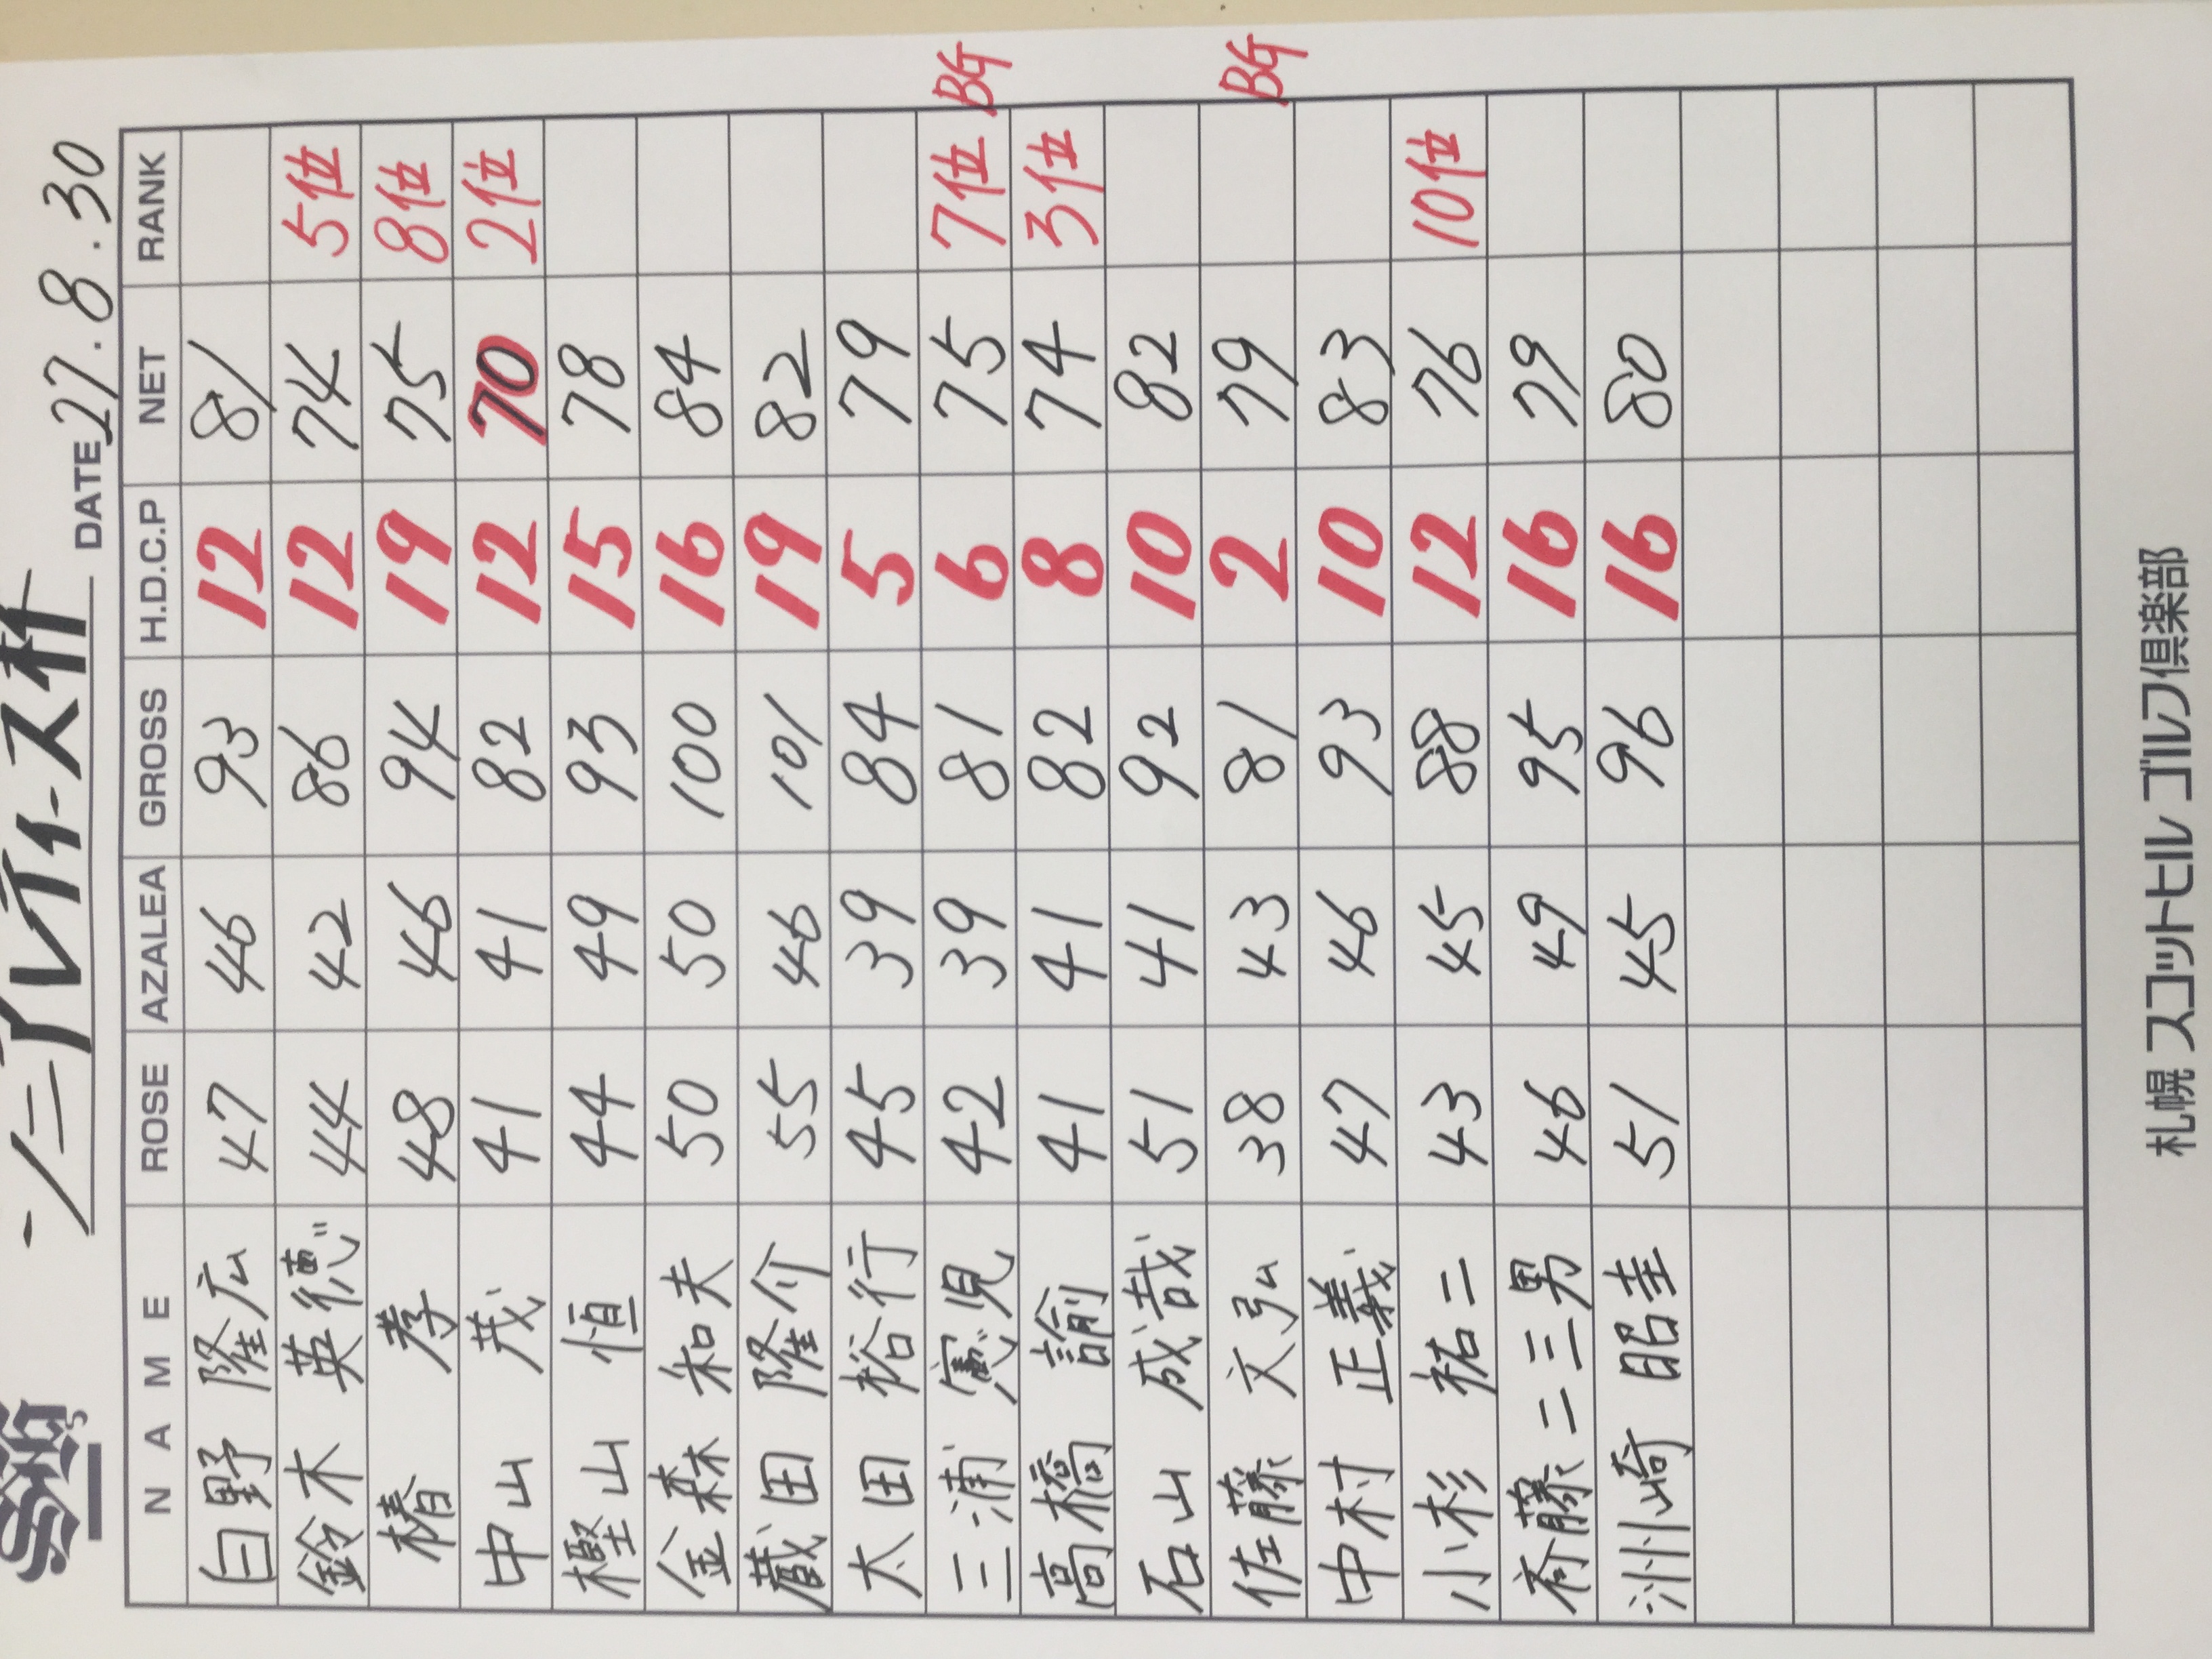 シニアレディース杯
DATE 27.8.30
NAME ROSE AZALEA GROSS H.D.C.P NET RANK
白野 隆広 47 46 93 12 81
鈴木 英徳 44 42 86 12 74 5位
椿 孝 48 46 94 19 75 8位
中山 茂 41 41 82 12 70 2位
樫山 恒 44 49 93 15 78
金森 和夫 50 50 100 16 84
蔵田 隆介 55 46 101 19 82
太田 裕行 45 39 84 5 79
三浦 憲児 42 39 81 6 75 7位 BG
高橋 諭 41 41 82 8 74 3位
石山 成哉 51 41 92 10 82
佐藤 文弘 38 43 81 2 79 BG
中村 正義 47 46 93 10 83
小杉 祐二 43 45 88 12 76 10位
斉藤 二三男 46 49 95 16 79
洲崎 昭圭 51 45 96 16 80
札幌 スコットヒル ゴルフ倶楽部